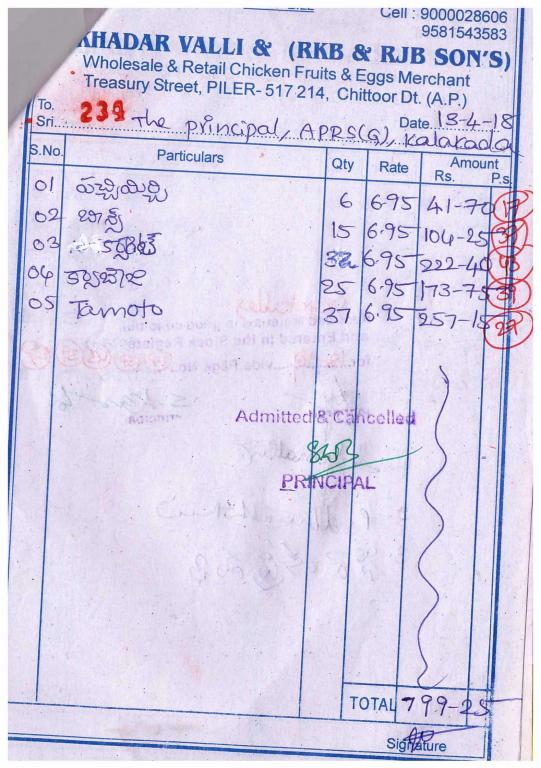 Cell : 9000028606
9581543583
KHADAR VALLI & (RKB & RJB SON'S)
Wholesale & Retail Chicken Fruits & Eggs Merchant
Treasury Street, PILER- 517 214, Chittoor Dt. (A.P.)
To. 239 Date 13-4-18
Sri. The principal, APRS(G), Kalakada
S.No. Particulars Qty Rate Amount
Rs. P.s.
01 పచ్చిమిర్చి 6 6.95 41-70 17
02 బీన్స్ 15 6.95 104-25
03 క్యారెట్ 32 6.95 222-40
04 క్యాబేజి 25 6.95 173-75 39
05 Tamoto 37 6.95 257-15 29
Admitted & Cancelled
PRINCIPAL
TOTAL 799-25
Signature